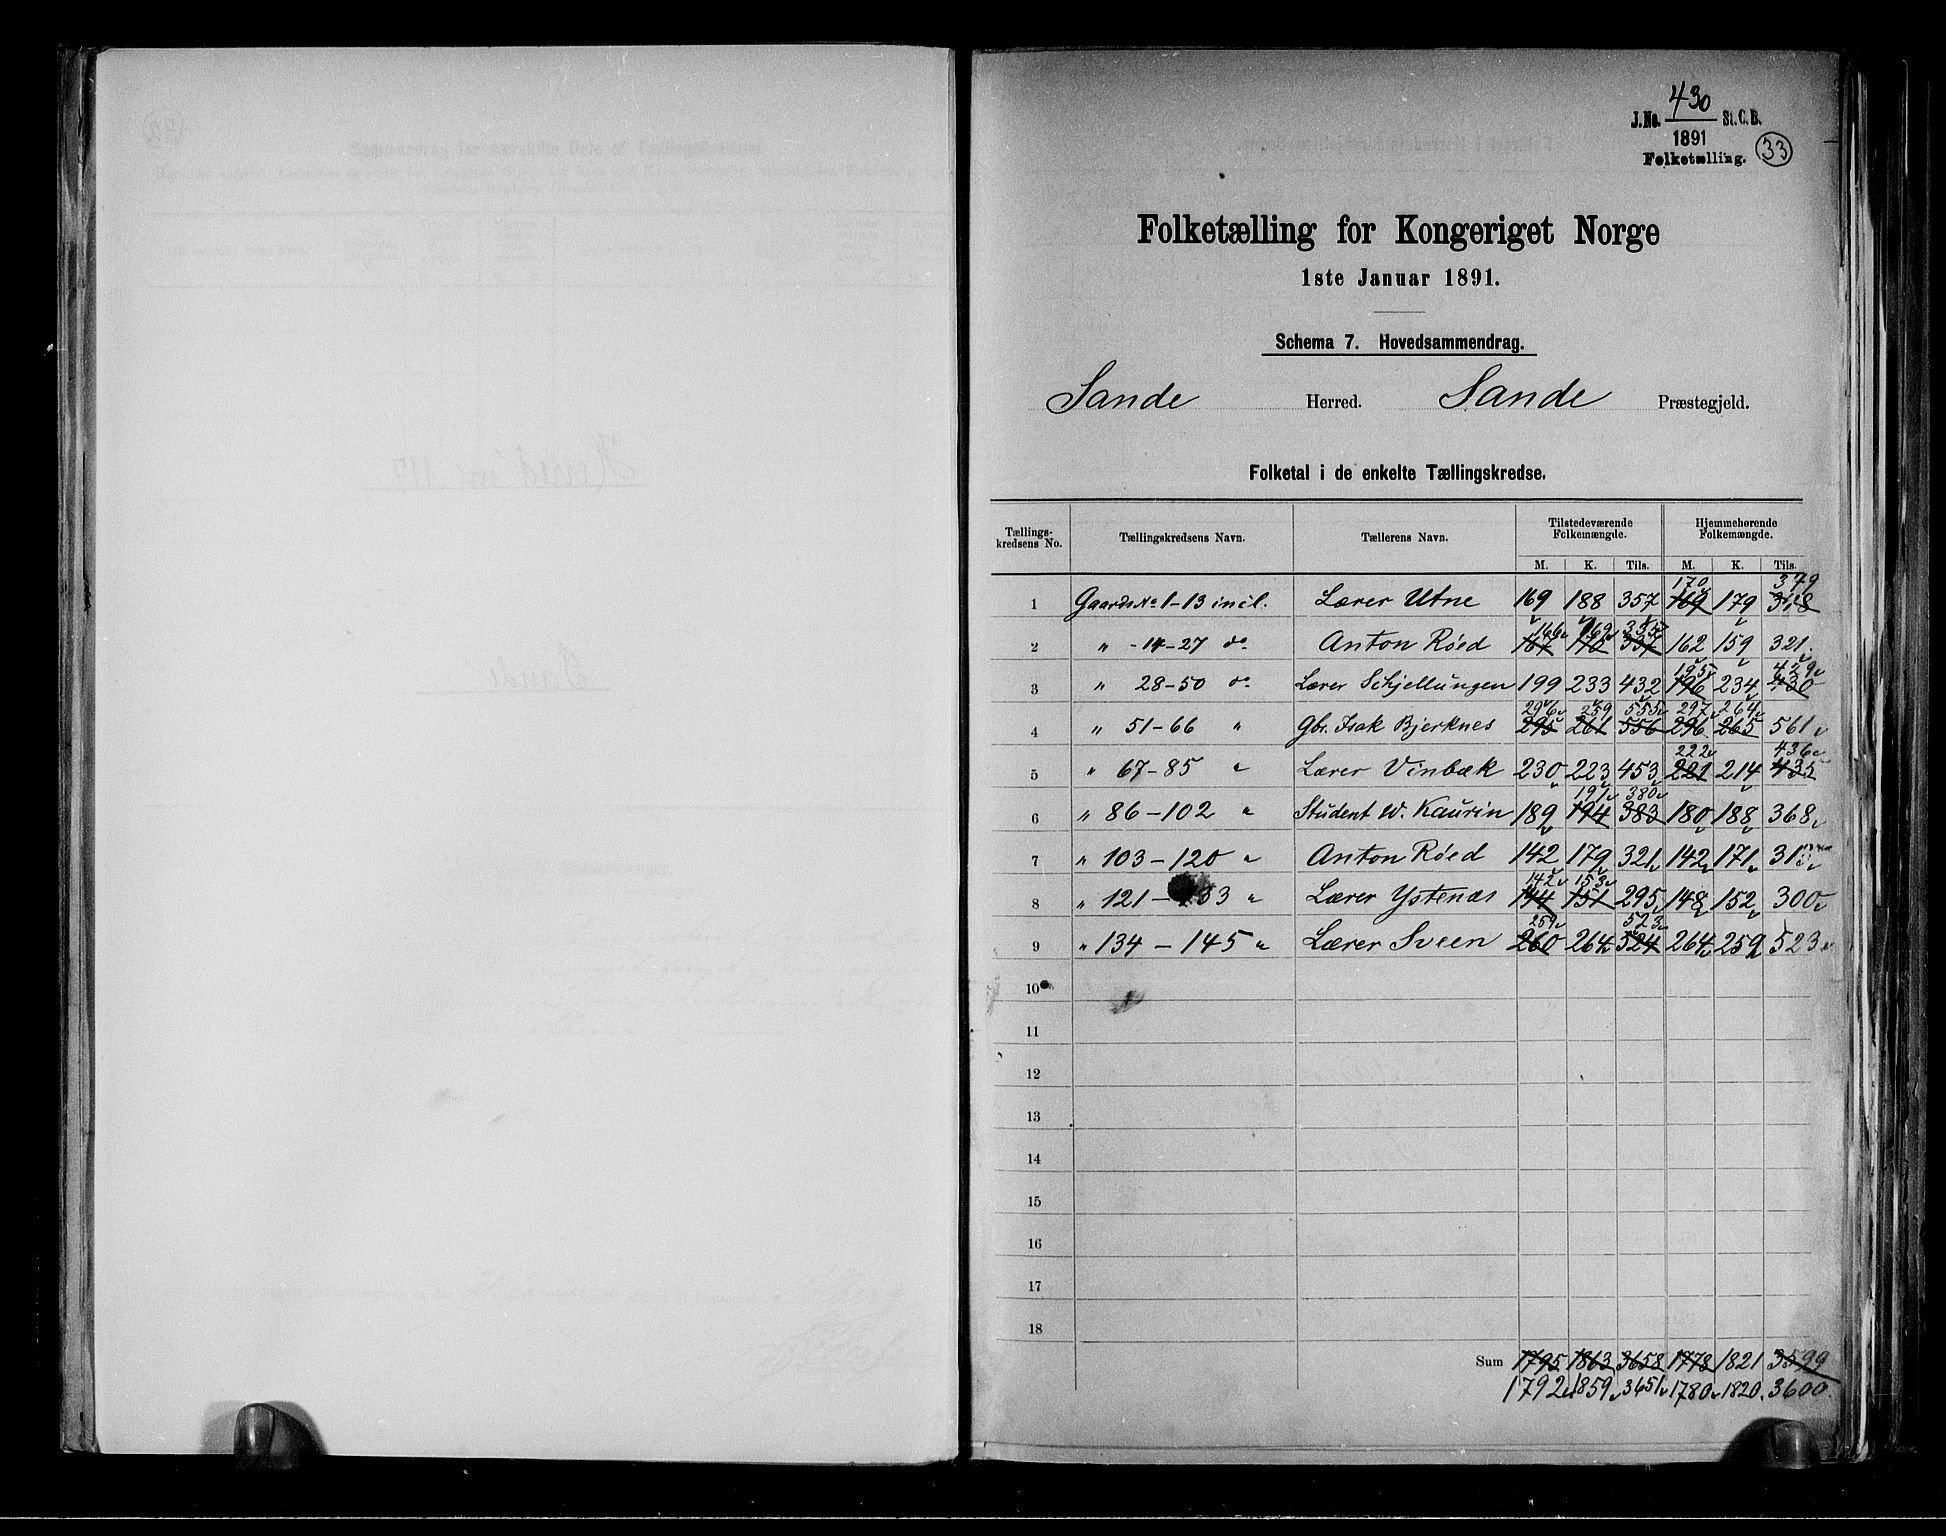 430
J.No. St.C.B.
1891
Folketælling. 33
Folketælling for Kongeriget Norge
1ste Januar 1891.
Schema 7. Hovedsammendrag.
Sande Herred. Sande Præstegjeld.
Folketal i de enkelte Tællingskredse.
Tællings-kredsens No. Tællingskredsens Navn. Tællerens Navn. Tilstedeværende Folkemængde. Hjemmehørende Folkemængde.
M. K. Tils. M. K. Tils.
170 349
1 Gaards No 1-13 incl. Lærer Utne 169 188 357 169 179 348
166 169 335
2 " -14-27 do Anton Røed 167 170 337 162 159 321
195 429
3 " 28-50 do Lærer Schjellungen 199 233 432 196 234 430
296 259 555 297 264
4 " 51-66 " Gbr. Isak Bjerknes 295 261 556 296 265 561
222 436
5 " 67-85 " Lærer Vinbæk 230 223 453 221 214 435
191 380
6 " 86-102 " Student W. Kaurin 189 194 383 180 188 368
7 " 103-120 " Anton Røed 142 179 321 142 171 313
142 153
8 " 121-133 " Lærer Ystenæs 144 151 295 148 152 300
259 523
9 " 134-145 " Lærer Sveen 260 264 524 264 259 523
10
11
12
13
14
15
16
17
18
Sum 1795 1863 3658 1778 1821 3599
1792 1859 3651 1780 1820 3600